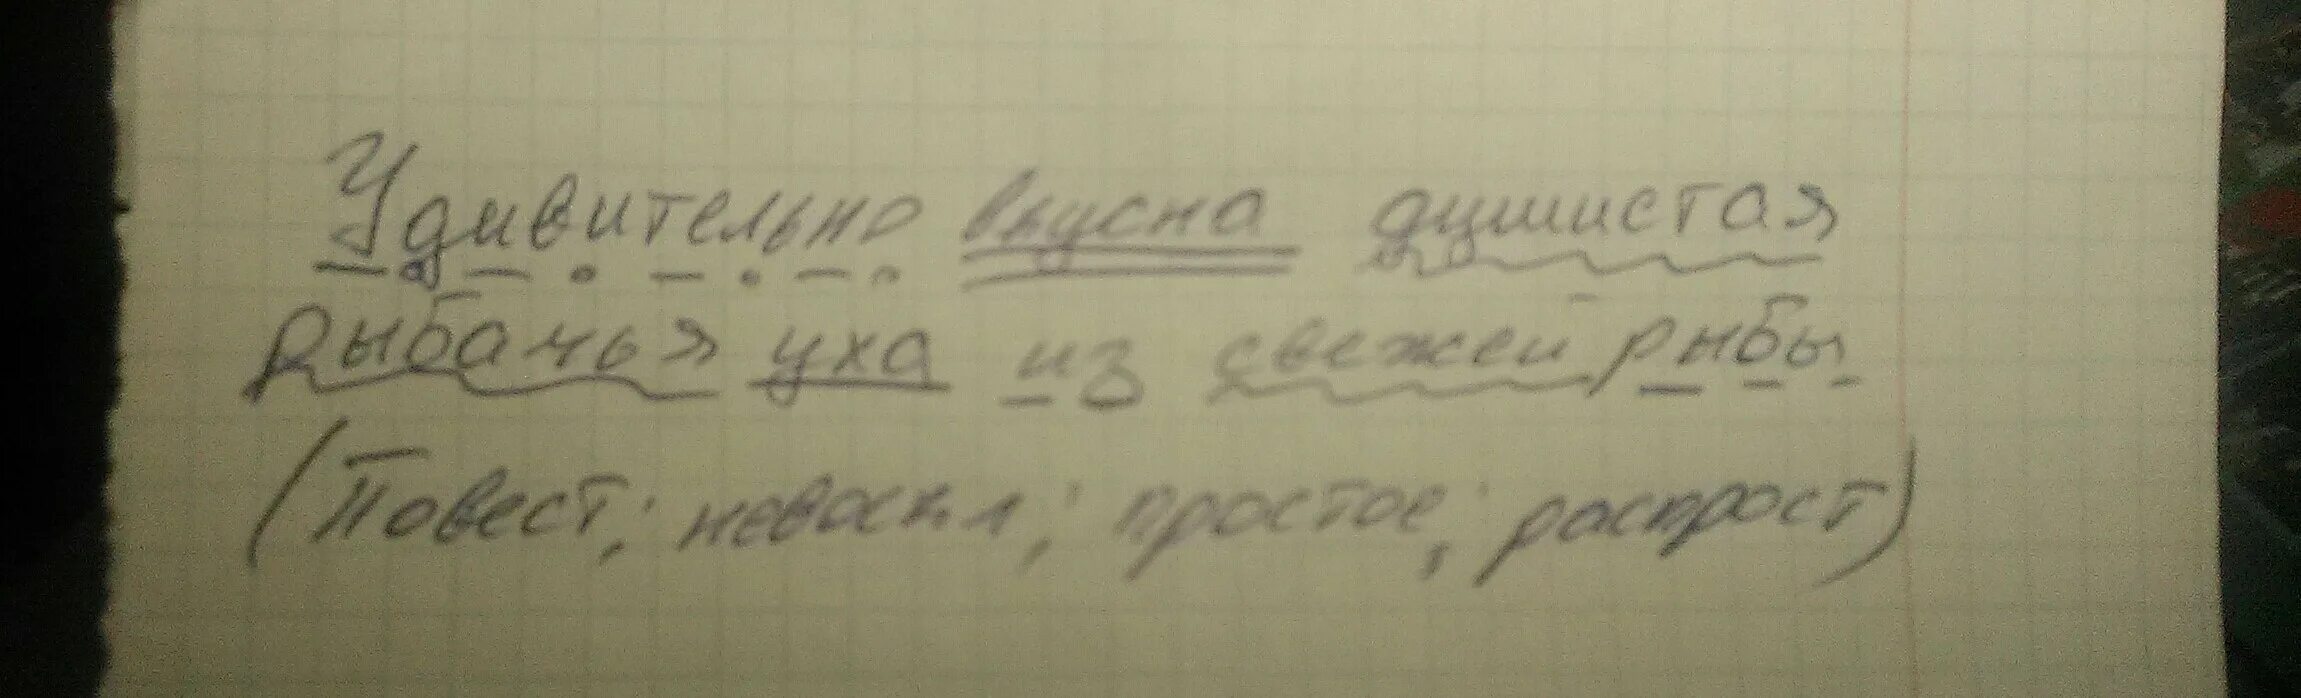 Удивительно вкусна душистая
рыбачья уха из свежей рыбы
(Повест; невоскл; простое; распрост)